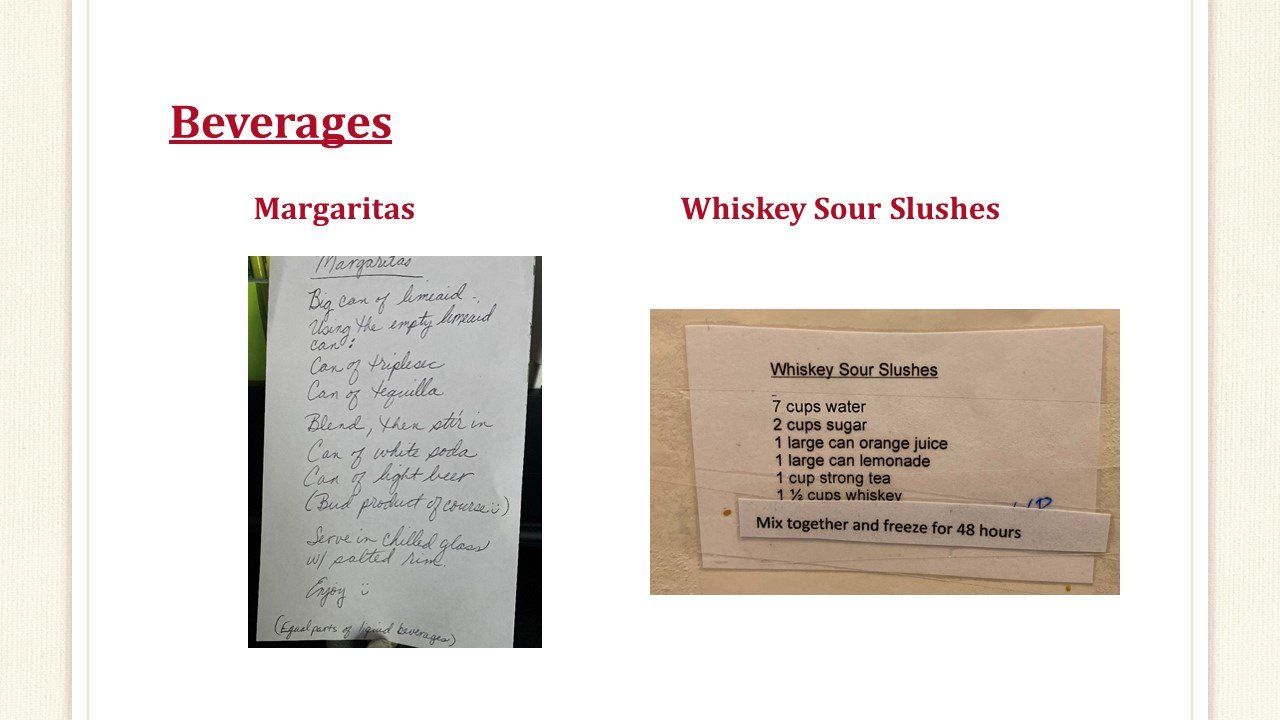 Beverages
Margaritas
Margaritas
Big can of limeaid
Using the empty limeaid
can:
Can of triplesec
Can of tequilla
Blend, then stir in
Can of white soda
Can of light beer
(Bud product of course :))
Serve in chilled glass
w/ salted rim.
Enjoy :)
(Equal parts of liquid beverages)
Whiskey Sour Slushes
Whiskey Sour Slushes
7 cups water
2 cups sugar
1 large can orange juice
1 large can lemonade
1 cup strong tea
1 ½ cups whiskey
Mix together and freeze for 48 hours